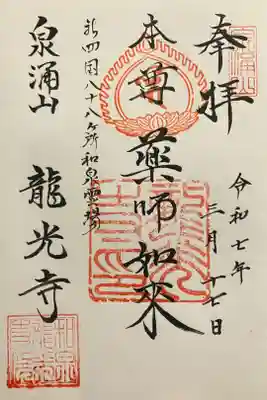 奉拝
令和七年
三月十七日
本尊 薬師如来
新四国八十八ヶ所和泉霊場
泉涌山 龍光寺